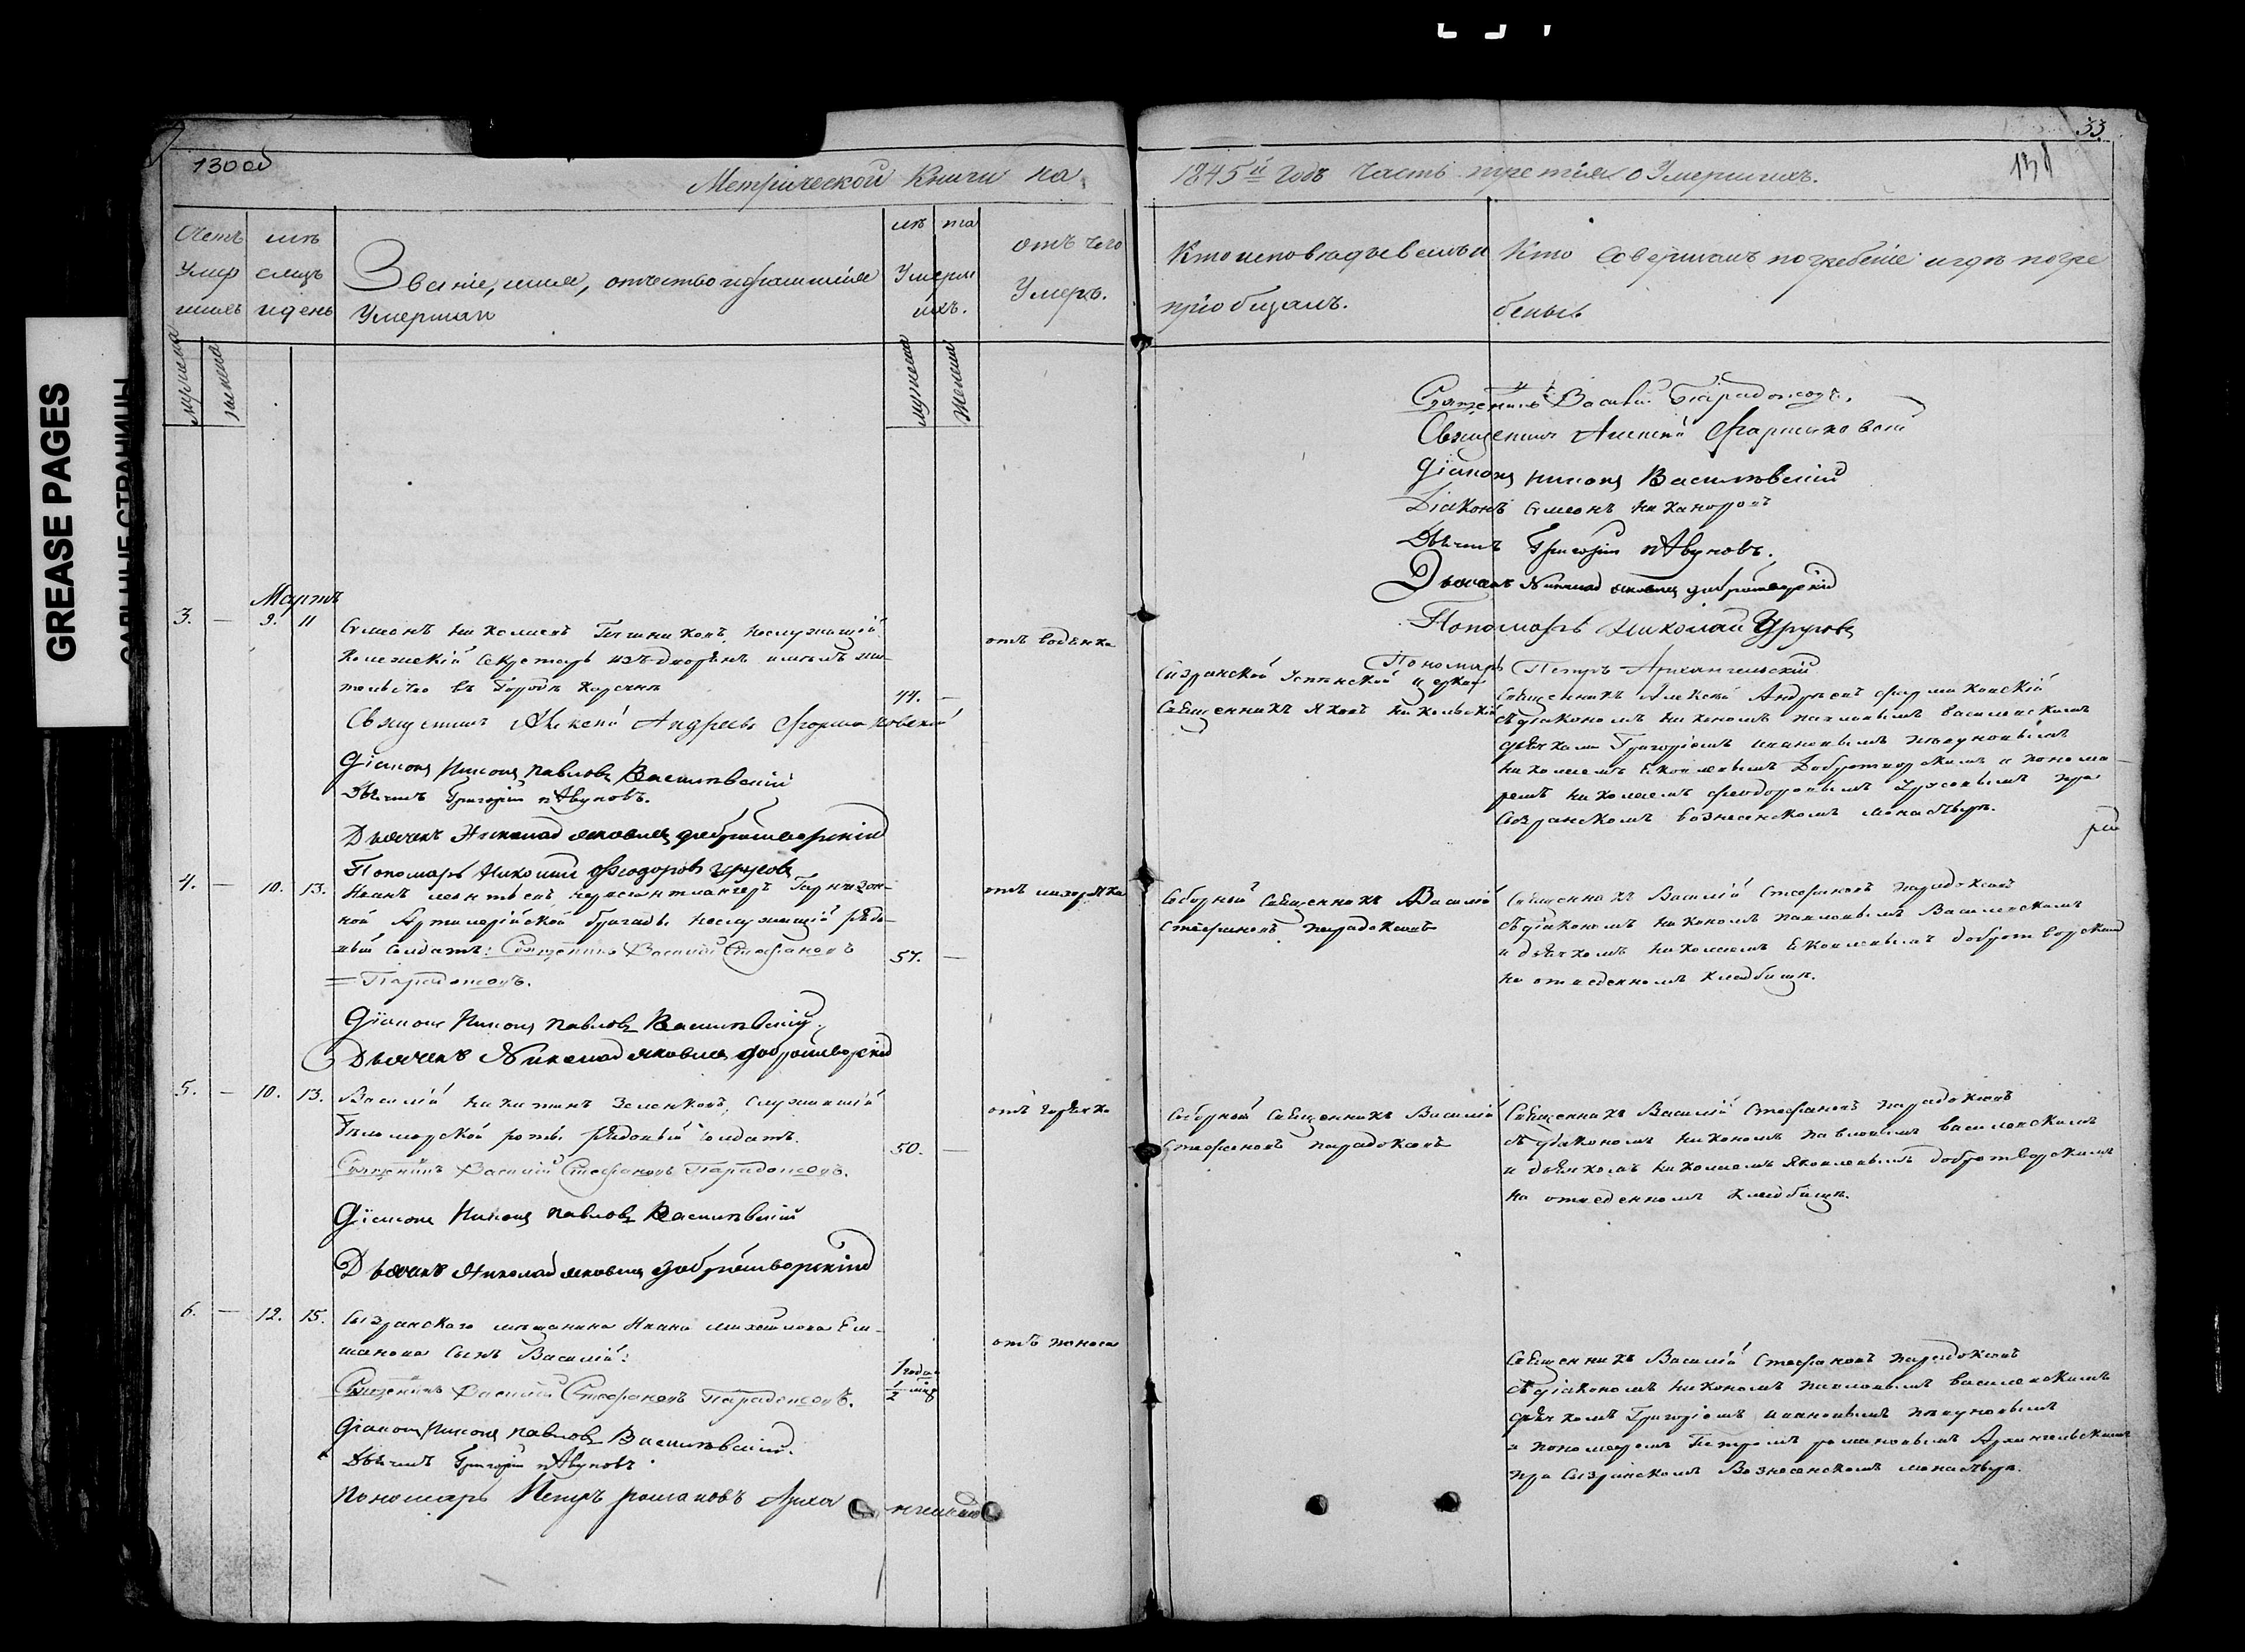 GREASE PAGES
САЛЬНЫЕ СТРАНИЦЫ
130 об
33
131
Метрической Книги на
1845й Годъ Часть третія о Умершихъ.
Счетъ Умершихъ
мѣсяцъ и день
Званіе, имя, отчество и фамилія Умершаго
лѣта Умершихъ.
отъ чего Умеръ.
Кто исповѣдывалъ и пріобщалъ.
Кто Совершалъ погребеніе и гдѣ погребены.
мужеска
женска
мужеска
женска
Священникъ Василій Парадоксовъ.
Священникъ Алексій Фармаковскій
Діаконъ Никонъ Василевскій
Діаконъ Симеонъ Никаноровъ
Дьячекъ Григорій Пѣвуновъ.
Дьячекъ Николай Яковлевъ Добротворскій
Пономарь Николай Урусовъ
Пономарь Петръ Архангельскій
Мартъ
3. — 9. 11
Симеонъ Николаевъ неслужащій
Колежскій Секретарь изъ дворянъ имѣлъ жи-
тельство въ Городѣ Корсунѣ
44. —
отъ водянки
Священникъ Алексій Андреевъ Фармаковскій
Діаконъ Никонъ Павловъ Василевскій
Дьячекъ Григорій Пѣвуновъ.
Дьячекъ Николай Яковлевъ Добротворскій
Пономарь Николай Феодоровъ Урусовъ
Сызранской Успенской церкви
Священникъ Яковъ Никольскій
Священникъ Алексій Андреевъ Фармаковскій
съ діакономъ Никономъ Павловымъ Василевскимъ
дьячками Григоріемъ Ивановымъ Пѣвуновымъ
Николаемъ Яковлевымъ Добротворскимъ и понома-
ремъ Николаемъ Феодоровымъ Урусовымъ при
Сызранскомъ Вознесенскомъ монастырѣ.
4. — 10. 13.
Иванъ Гарнизон-
ной Артилерійской бригады неслужащій рядо-
вый Солдатъ: Священникъ Василій Стефановъ
= Парадоксовъ.
57. —
Діаконъ Никонъ Павловъ Василевскій.
Дьячекъ Николай Яковлевъ Добротворскій
Соборный Священникъ Василій
Стефановъ Парадоксовъ
Священникъ Василій Стефановъ Парадоксовъ
съ діакономъ Никономъ Павловымъ Василевскимъ
и дьячкомъ Николаемъ Яковлевымъ Добротворскимъ
на отведенномъ кладбищѣ.
5. — 10. 13.
Василій Никитинъ Зеленковъ, служившій
рядовый солдатъ.
50. —
отъ горячки
Священникъ Василій Стефановъ Парадоксовъ.
Діаконъ Никонъ Павловъ Василевскій
Дьячекъ Николай Яковлевъ Добротворскій
Соборный Священникъ Василій
Стефановъ Парадоксовъ
Священникъ Василій Стефановъ Парадоксовъ
съ діакономъ Никономъ Павловымъ Василевскимъ
и дьячкомъ Николаемъ Яковлевымъ Добротворскимъ
на отведенномъ кладбищѣ.
6. — 12. 15.
Сызранскаго мѣщанина Ивана Михайлова
сынъ Василій:
отъ поноса
Священникъ Василій Стефановъ Парадоксовъ.
Діаконъ Никонъ Павловъ Василевскій.
Дьячекъ Григорій Пѣвуновъ
Пономарь Петръ Романовъ Архангельскій
Священникъ Василій Стефановъ Парадоксовъ
съ діакономъ Никономъ Павловымъ Василевскимъ
дьячкомъ Григоріемъ Ивановымъ Пѣвуновымъ
и пономаремъ Петромъ Романовымъ Архангельскимъ
при Сызранскомъ Вознесенскомъ монастырѣ.